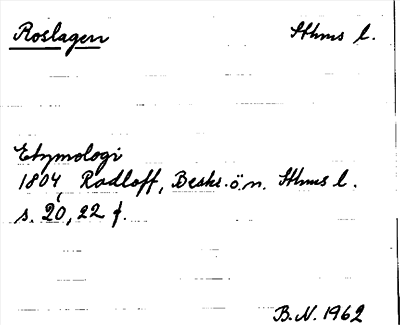 Roslagen Sthms l.
Etymologi
1804 Radloff, Beskr. ö. n. Sthms l.
s. 20, 22 f.
B.N. 1962